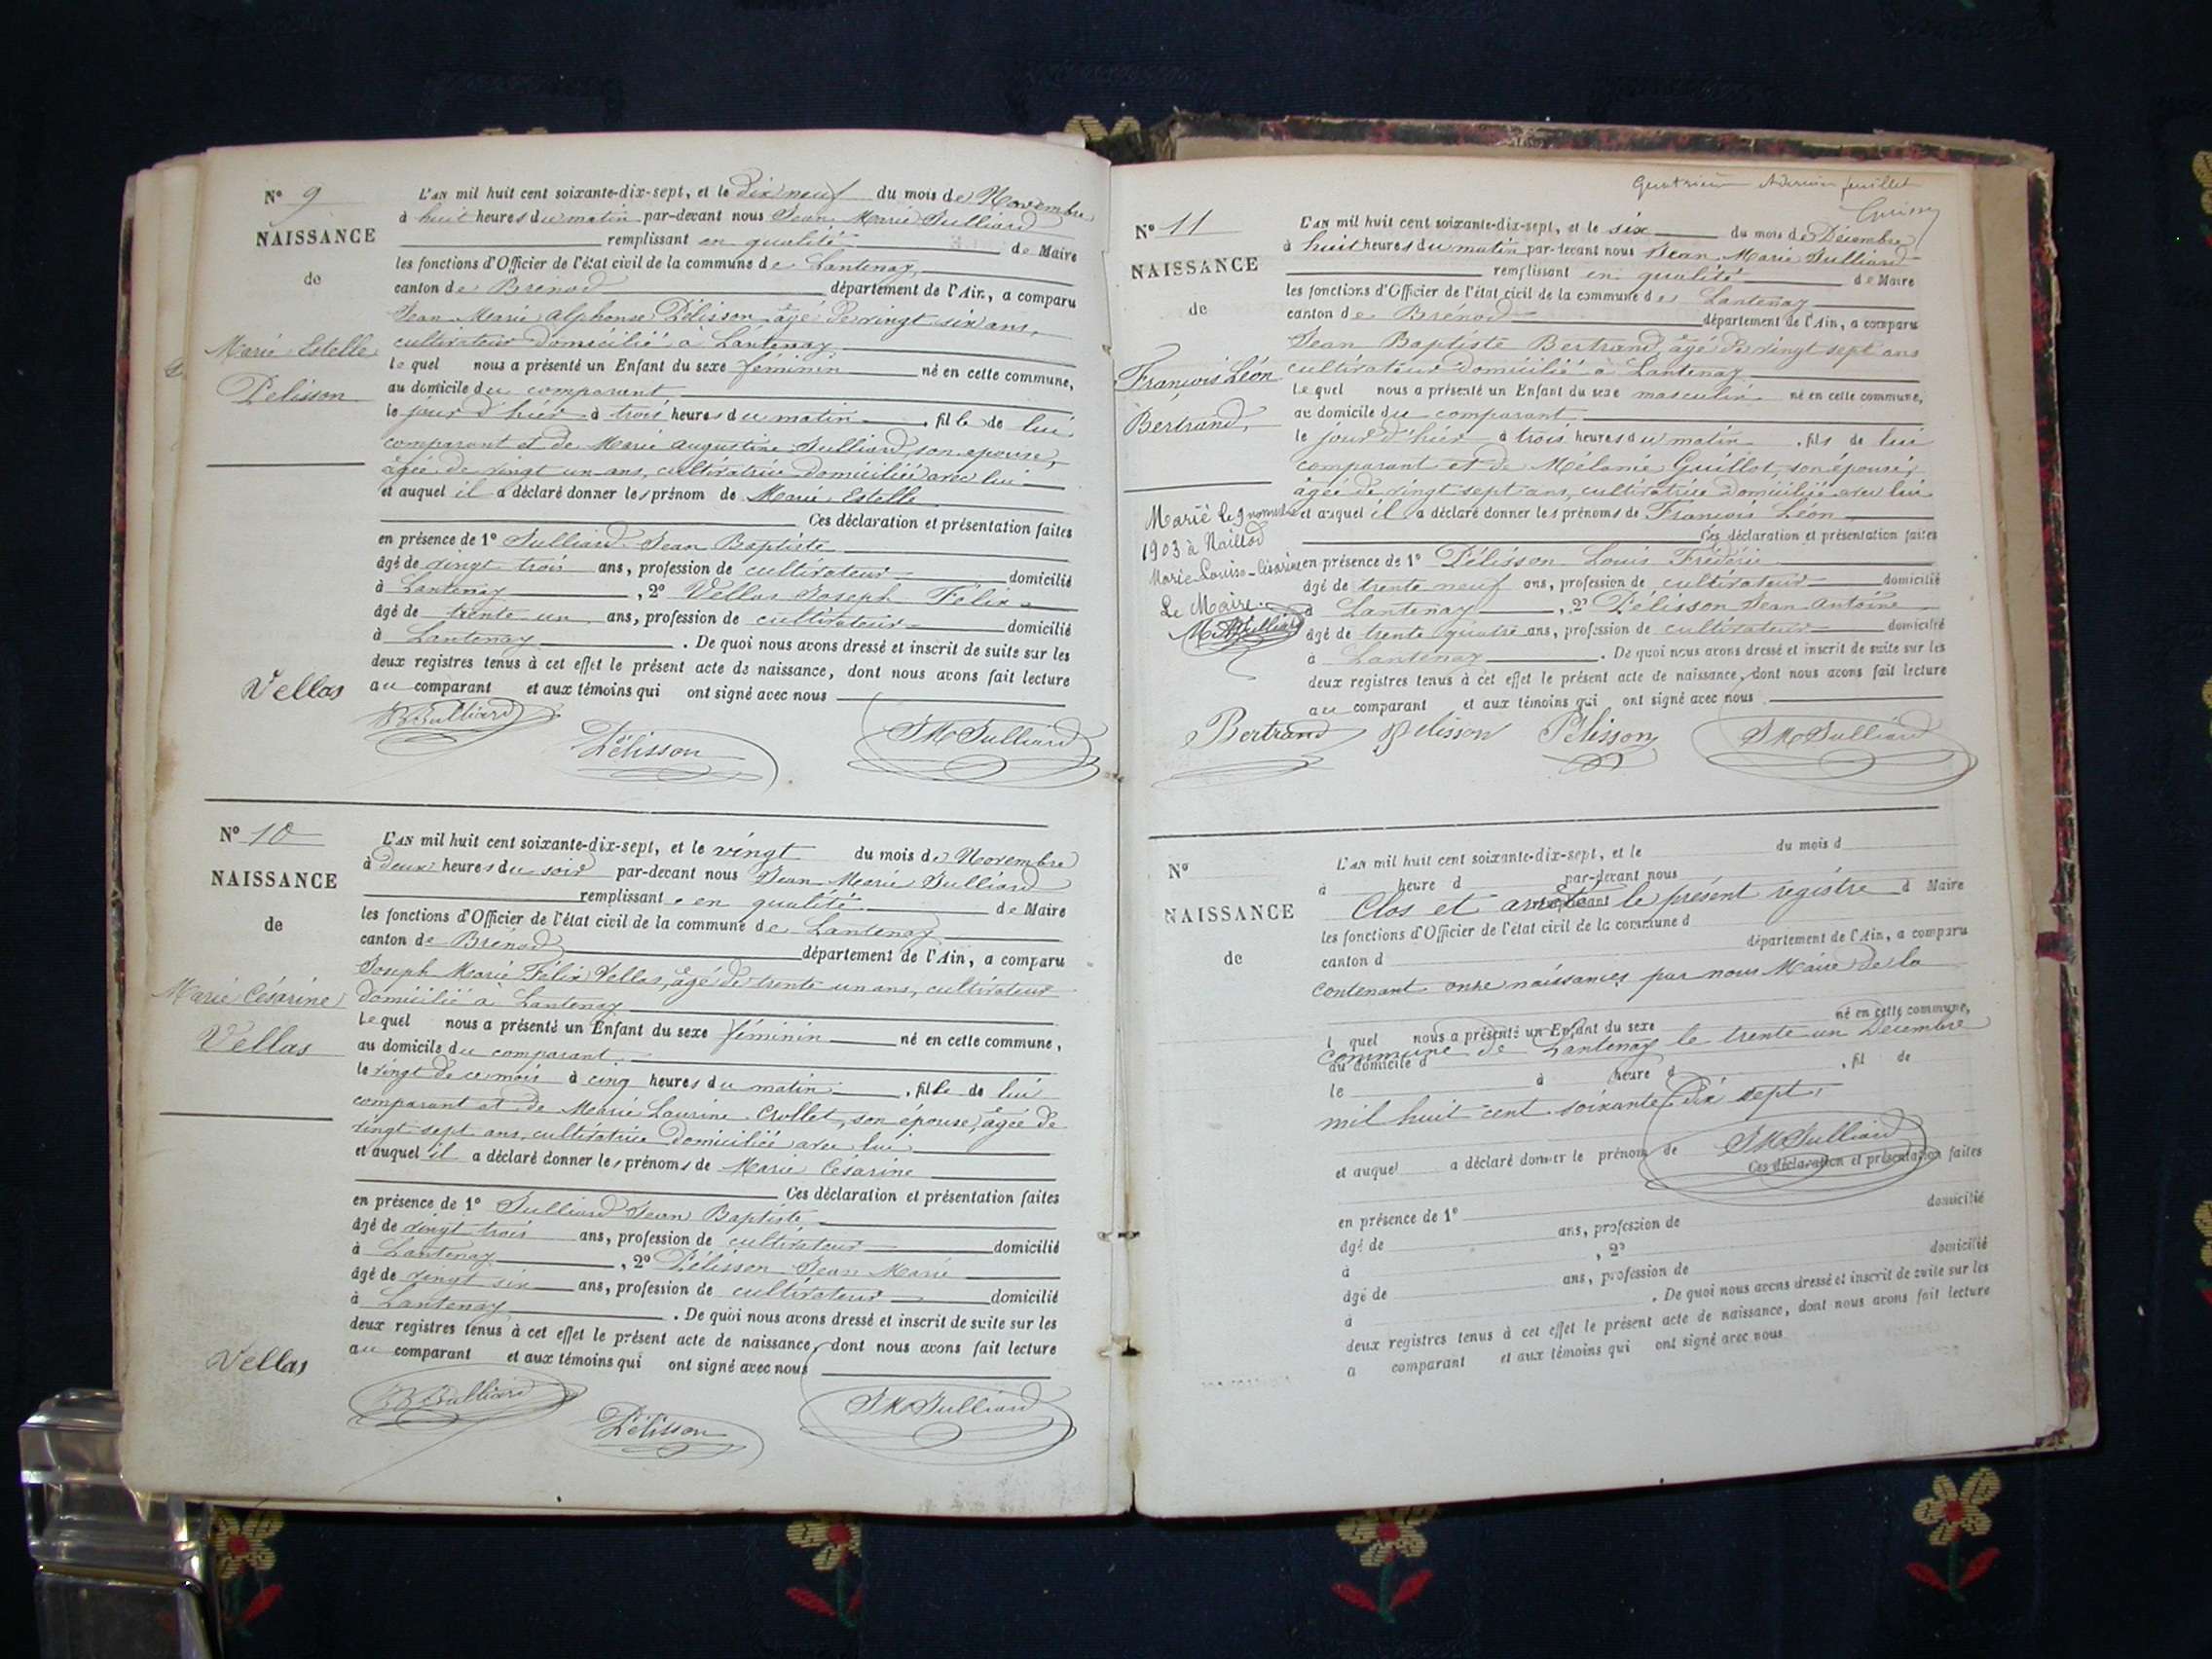 N° 9
NAISSANCE
de
Marie Estelle
Pelisson
L'AN mil huit cent soixante-dix-sept, et le dix neuf du mois de Novembre
à huit heures du matin par-devant nous Jean Marie Julliard
remplissant en qualité de Maire
les fonctions d'Officier de l'état civil de la commune de Lantenay
canton de Brenod département de l'Ain, a comparu
Jean Marie Alphonse Pélisson, âgé de vingt six ans,
cultivateur domicilié à Lantenay
le quel nous a présenté un Enfant du sexe féminin né en cette commune,
au domicile du comparant
le jour d'hier à trois heures du matin, fille de lui
comparant et de Marie Augustine Julliard, son épouse,
âgée de vingt un ans, cultivatrice domiciliée avec lui
et auquel il a déclaré donner les prénom de Marie Estelle
Ces déclaration et présentation faites
en présence de 1° Julliard Jean Baptiste
âgé de vingt trois ans, profession de cultivateur domicilié
à Lantenay, 2° Vellas Joseph Félix
âgé de trente un ans, profession de cultivateur domicilié
à Lantenay. De quoi nous avons dressé et inscrit de suite sur les
deux registres tenus à cet effet le présent acte de naissance, dont nous avons fait lecture
au comparant et aux témoins qui ont signé avec nous
Vellas
JB Julliard
Pélisson
JM Julliard
N° 10
NAISSANCE
de
Marie Césarine
Vellas
L'AN mil huit cent soixante-dix-sept, et le vingt du mois de Novembre
à deux heures du soir par-devant nous Jean Marie Julliard
remplissant en qualité de Maire
les fonctions d'Officier de l'état civil de la commune de Lantenay
canton de Brénod département de l'Ain, a comparu
Joseph Marie Félix Vellas, âgé de trente un ans, cultivateur
domicilié à Lantenay
le quel nous a présenté un Enfant du sexe féminin né en cette commune,
au domicile du comparant
le vingt de ce mois à cinq heures du matin, fille de lui
comparant et de Marie Laurine Crollet, son épouse, âgée de
vingt sept ans, cultivatrice domiciliée avec lui
et auquel il a déclaré donner les prénoms de Marie Césarine
Ces déclaration et présentation faites
en présence de 1° Julliard Jean Baptiste
âgé de vingt trois ans, profession de cultivateur domicilié
à Lantenay, 2° Pélisson Jean Marie
âgé de vingt six ans, profession de cultivateur domicilié
à Lantenay. De quoi nous avons dressé et inscrit de suite sur les
deux registres tenus à cet effet le présent acte de naissance, dont nous avons fait lecture
au comparant et aux témoins qui ont signé avec nous
Vellas
JB Julliard
Pélisson
JM Julliard
feuillet
N° 11
NAISSANCE
de
François Léon
Bertrand,
Marié le 9 novembre
1903 à
Marie-Louise-Césarine
Le Maire.
L'AN mil huit cent soixante-dix-sept, et le six du mois de Décembre
à huit heures du matin par-devant nous Jean Marie Julliard
remplissant en qualité de Maire
les fonctions d'Officier de l'état civil de la commune de Lantenay
canton de Brénod département de l'Ain, a comparu
Jean Baptiste Bertrand, âgé de vingt sept ans
cultivateur domicilié à Lantenay
Le quel nous a présenté un Enfant du sexe masculin né en cette commune,
au domicile du comparant
le jour d'hier à trois heures du matin, fils de lui
comparant et de Mélanie Guillot, son épouse,
âgée de vingt sept ans, cultivatrice domiciliée avec lui
et auquel il a déclaré donner les prénoms de François Léon
Ces déclaration et présentation faites
en présence de 1° Pélisson Louis Frédéric
âgé de trente neuf ans, profession de cultivateur domicilié
à Lantenay, 2° Pélisson Jean Antoine
âgé de trente quatre ans, profession de cultivateur domicilié
à Lantenay. De quoi nous avons dressé et inscrit de suite sur les
deux registres tenus à cet effet le présent acte de naissance, dont nous avons fait lecture
au comparant et aux témoins qui ont signé avec nous
Bertrand Pelisson Pélisson JM Julliard
N°
NAISSANCE
de
L'AN mil huit cent soixante-dix-sept, et le du mois d
à heure d par-devant nous
remplissant d Maire
Clos et arrêté le présent registre
les fonctions d'Officier de l'état civil de la commune d
canton d département de l'Ain, a comparu
contenant onze naissances par nous Maire de la
l quel nous a présenté un Enfant du sexe né en cette commune,
commune de Lantenay le trente un Décembre
au domicile d
le à heure d , fil de
mil huit cent soixante dix sept.
et auquel a déclaré donner le prénom de
JM Julliard
Ces déclaration et présentation faites
en présence de 1°
âgé de ans, profession de domicilié
à , 2°
âgé de ans, profession de domicilié
à . De quoi nous avons dressé et inscrit de suite sur les
deux registres tenus à cet effet le présent acte de naissance, dont nous avons fait lecture
a comparant et aux témoins qui ont signé avec nous